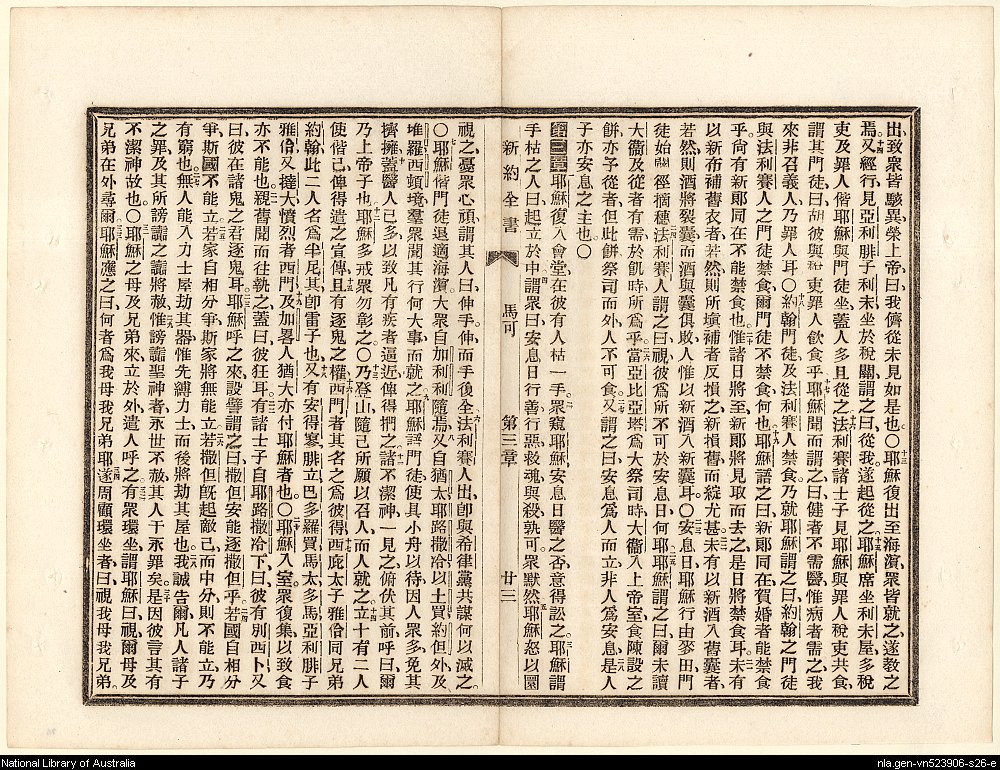 出致眾皆駭異榮上帝曰我儕從未見如是也○耶穌復出至海濱眾皆就之遂敎之
焉又經行見亞利腓子利未坐於稅關謂之曰從我遂起從之耶穌席坐利未屋多稅
吏及罪人偕耶穌與門徒坐蓋人多且從之法利賽諸士子見耶穌與罪人稅吏共食
謂其門徒曰胡彼與稅吏罪人飲食乎耶穌聞而謂之曰健者不需醫惟病者需之我
來非召義人乃罪人耳○約翰門徒及法利賽人禁食乃就耶穌謂之曰約翰之門徒
與法利賽人之門徒禁食爾門徒不禁食何也耶穌語之曰新郞同在賀婚者能禁食
乎尙有新郞同在不能禁食也惟諸日將至新郞將見取而去之是日將禁食耳未有
以新布補舊衣者若然則所塡補者反損之新損舊而綻尤甚未有以新酒入舊囊者
若然則酒將裂囊而酒與囊俱敗人惟以新酒入新囊耳○安息日耶穌行由麥田門
徒始開徑摘穗法利賽人謂之曰視彼爲所不可於安息日何耶耶穌謂之曰爾未讀
大衞及從者有需於飢時所爲乎當亞比亞塔爲大祭司時大衞入上帝室食陳設之
餅亦予從者但此餅祭司而外人不可食又謂之曰安息爲人而立非人爲安息是人
子亦安息之主也○
第三章耶穌復入會堂在彼有人枯一手眾窺耶穌安息日醫之否意得訟之耶穌謂
手枯之人曰起立於中謂眾曰安息日行善行惡救魂與殺孰可眾默然耶穌怒以圜
新約全書 馬可 第三章 廿三
視之憂眾心頑謂其人曰伸手伸而手後全法利賽人出卽與希律黨共謀何以滅之
○耶穌偕門徒退適海濱大眾自加利利隨焉又自猶太耶路撒冷以土買約但外及
堆羅西頓境羣眾聞其行何大事而就之耶穌語門徒使具小舟以待因人眾多免其
擠擁蓋醫人已多以致凡有疾者逼近俾得捫之諸不潔神一見之俯伏其前呼曰爾
乃上帝子也耶穌多戒眾勿彰之○乃登山隨己所願以召人而人就之立十有二人
使偕己俾得遣之宣傳且有逐鬼之權西門者其名之爲彼得西庇太子雅各同兄弟
約翰此二人名爲半尼其卽雷子也又有安得寡腓立巴多羅買馬太多馬亞利腓子
雅各又撻大憤烈者西門及加畧人猶大亦付耶穌者也○耶穌入室眾復集以致食
亦不能也親舊聞而往執之蓋曰彼狂耳有諸士子自耶路撒冷下曰彼有別西卜又
曰彼在諸鬼之君逐鬼耳耶穌呼之來設譬謂之曰撒但安能逐撒但乎若國自相分
爭斯國不能立若家自相分爭斯家將無能立若撒但旣起敵己而中分則不能立乃
有窮也無人能入力士屋劫其器惟先縛力士而後將劫其屋也我誠告爾凡人諸子
之罪及其所謗讟之讟將赦惟謗讟聖神者永世不赦其人于永罪矣是因彼言其有
不潔神故也○耶穌之母及兄弟來立於外遣人呼之有眾環坐謂耶穌曰視爾母及
兄弟在外尋爾耶穌應之曰何者爲我母我兄弟耶遂周顧環坐者曰視我母我兄弟
National Library of Australia
nla.gen-vn523906-s26-e